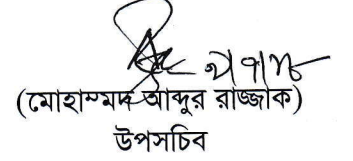 (মোহাম্মদ আব্দুর রাজ্জাক)
উপসচিব